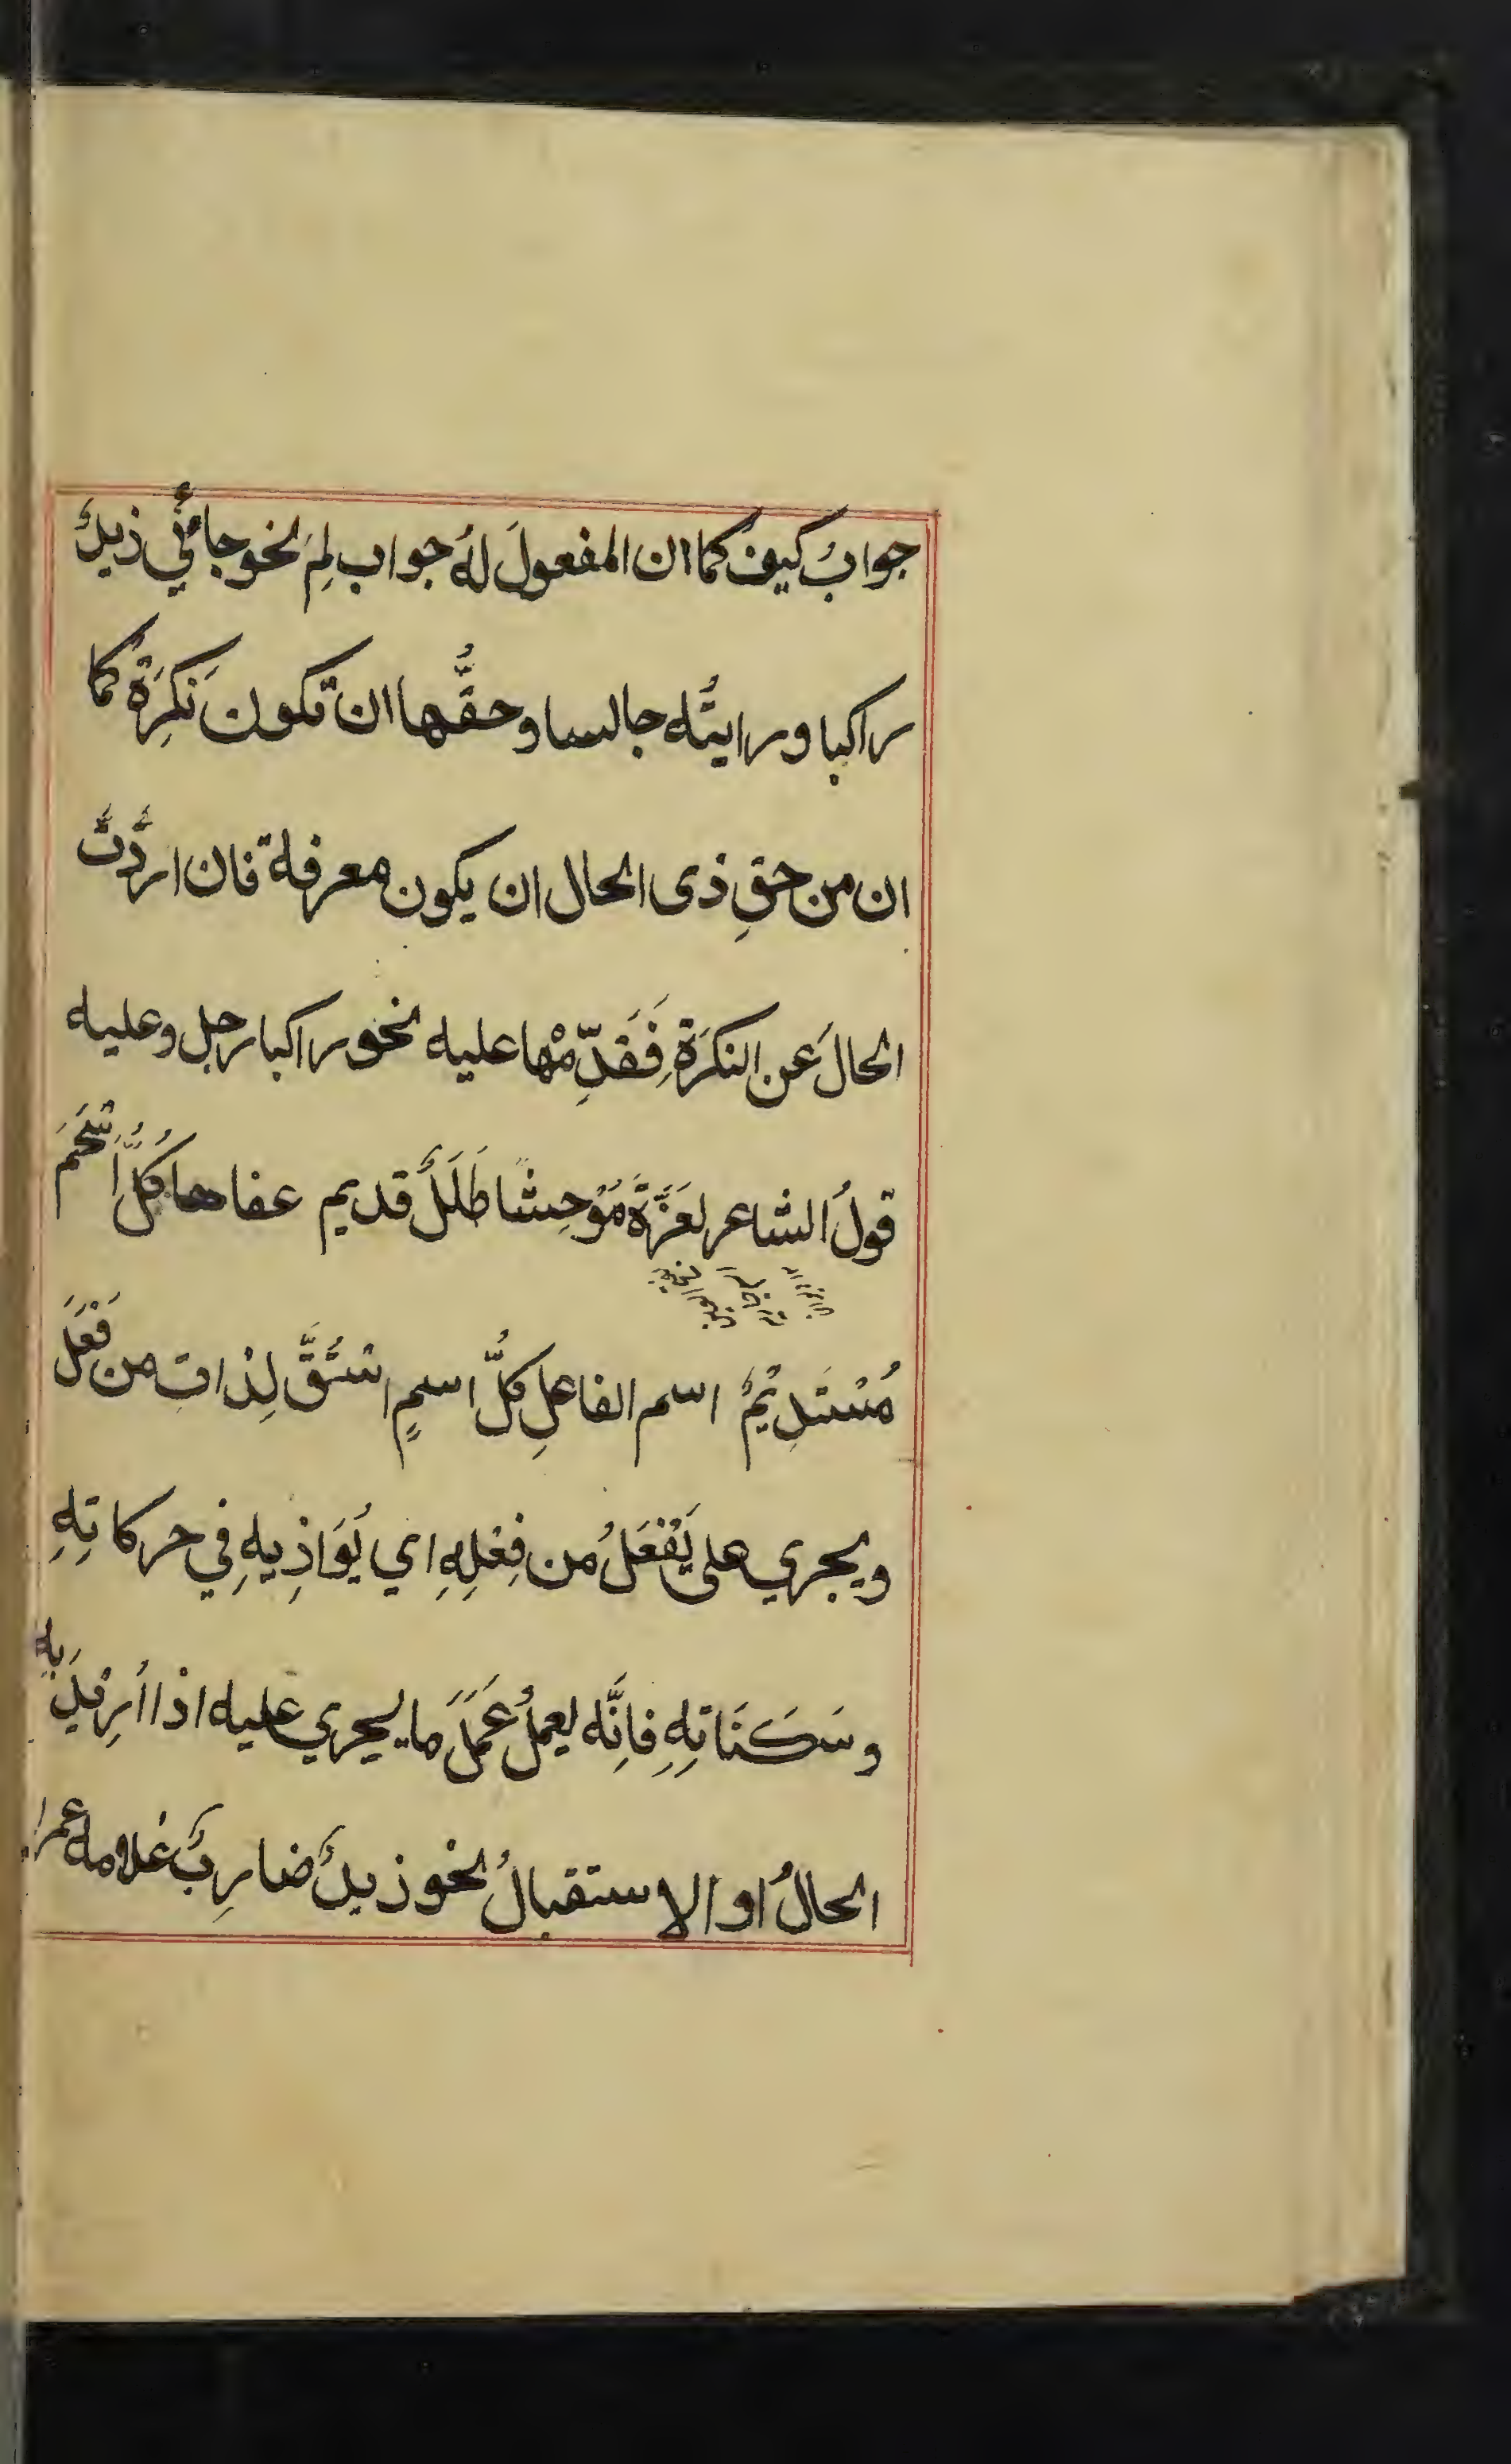 جوابُ كيف كما ان المفعولَ لهُ جواب لِمَ نحو جائَني زيدٌ
راكبا ورايتُه جالسا وحقُّها ان تكونَ نكرَةً كما
ان من حقِ ذى الحال ان يكون معرفة فان اردْتَ
الحالَ عن النكرَةِ فَقَدِّمْها عليه نحو راكبا رجل وعليه
قولُ الشاعر لعَزَّةَ مُوْحِشًا طَلَلٌ قديم عفاها كُلُّ اَسْحَمَ
مُسْتَدِيْمٌ اسم الفاعلِ كلُّ اسمٍ اشتُقَّ لِذاتِ من فَعْلَ
ويجري على يَفْعَلُ من فِعْلِهِ اي يُوَاذِيهِ في حركاتِهِ
وسَكَنَاتِهِ فاِنَّه يعملُ عَمَلَ ما يجري عليه اذا اُرِيْدَ بِهِ
الحالُ او الاستقبالُ نحو زيدٌ ضارِبٌ غلامه عمرا